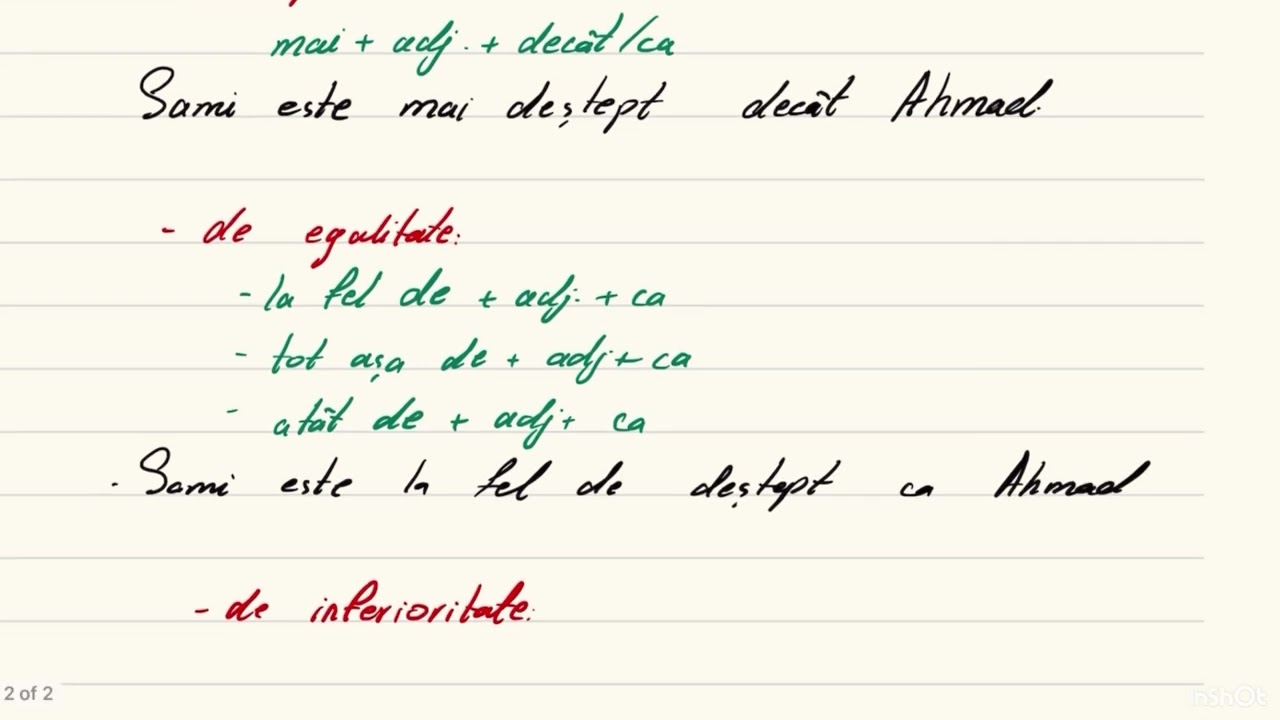 mai + adj. + decât/ca
Sami este mai deștept decât Ahmad.
- de egalitate:
- la fel de + adj. + ca
- tot așa de + adj + ca
- atât de + adj + ca
. Sami este la fel de deștept ca Ahmad
- de inferioritate:
2 of 2
InShOt